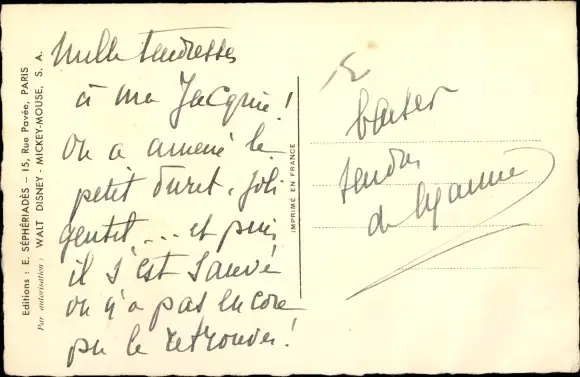 Editions : E. SÉPHÉRIADÈS — 15, Rue Pavée, PARIS
Par autorisation : WALT DISNEY - MICKEY-MOUSE, S. A.
Mille tendresses
à ma Jacquie !
On a amené le
petit , joli
gentil, ... et puis
il s'est sauvé
on n'a pas encore
pu le retrouver !
IMPRIMÉ EN FRANCE
baiser
tendre
de